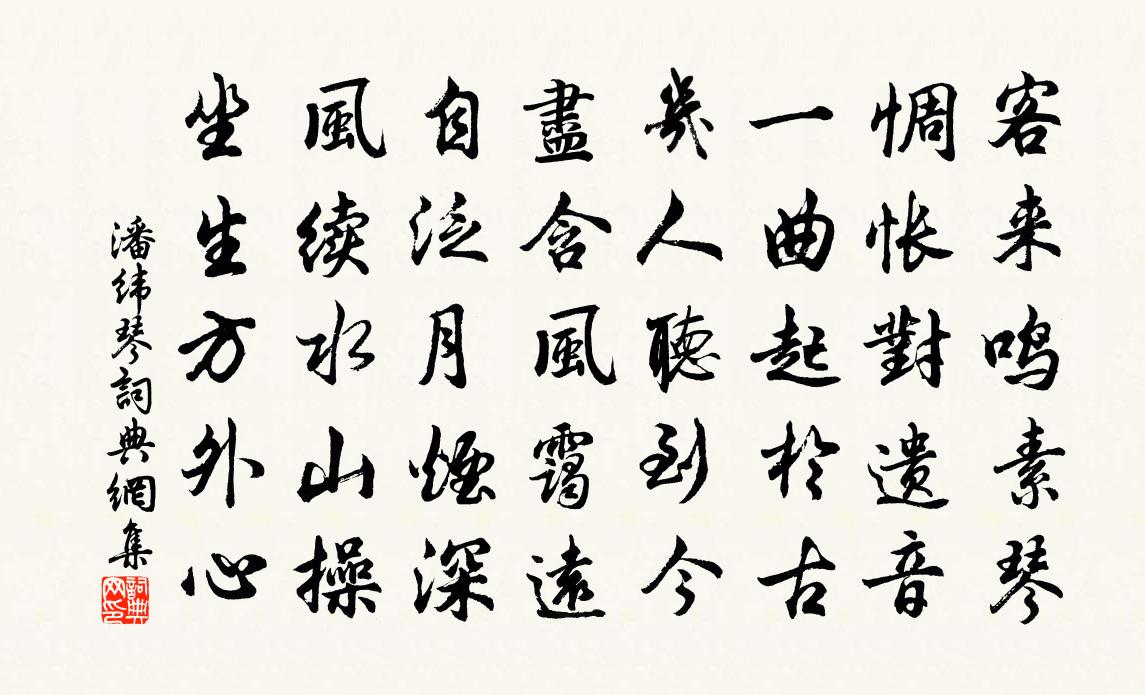 客来鸣素琴
惆怅對遗音
一曲起於古
幾人聽到今
盡含風靄遠
自泛月煙深
風续水山操
坐生方外心
潘纬琴詞典網集
詞典网印